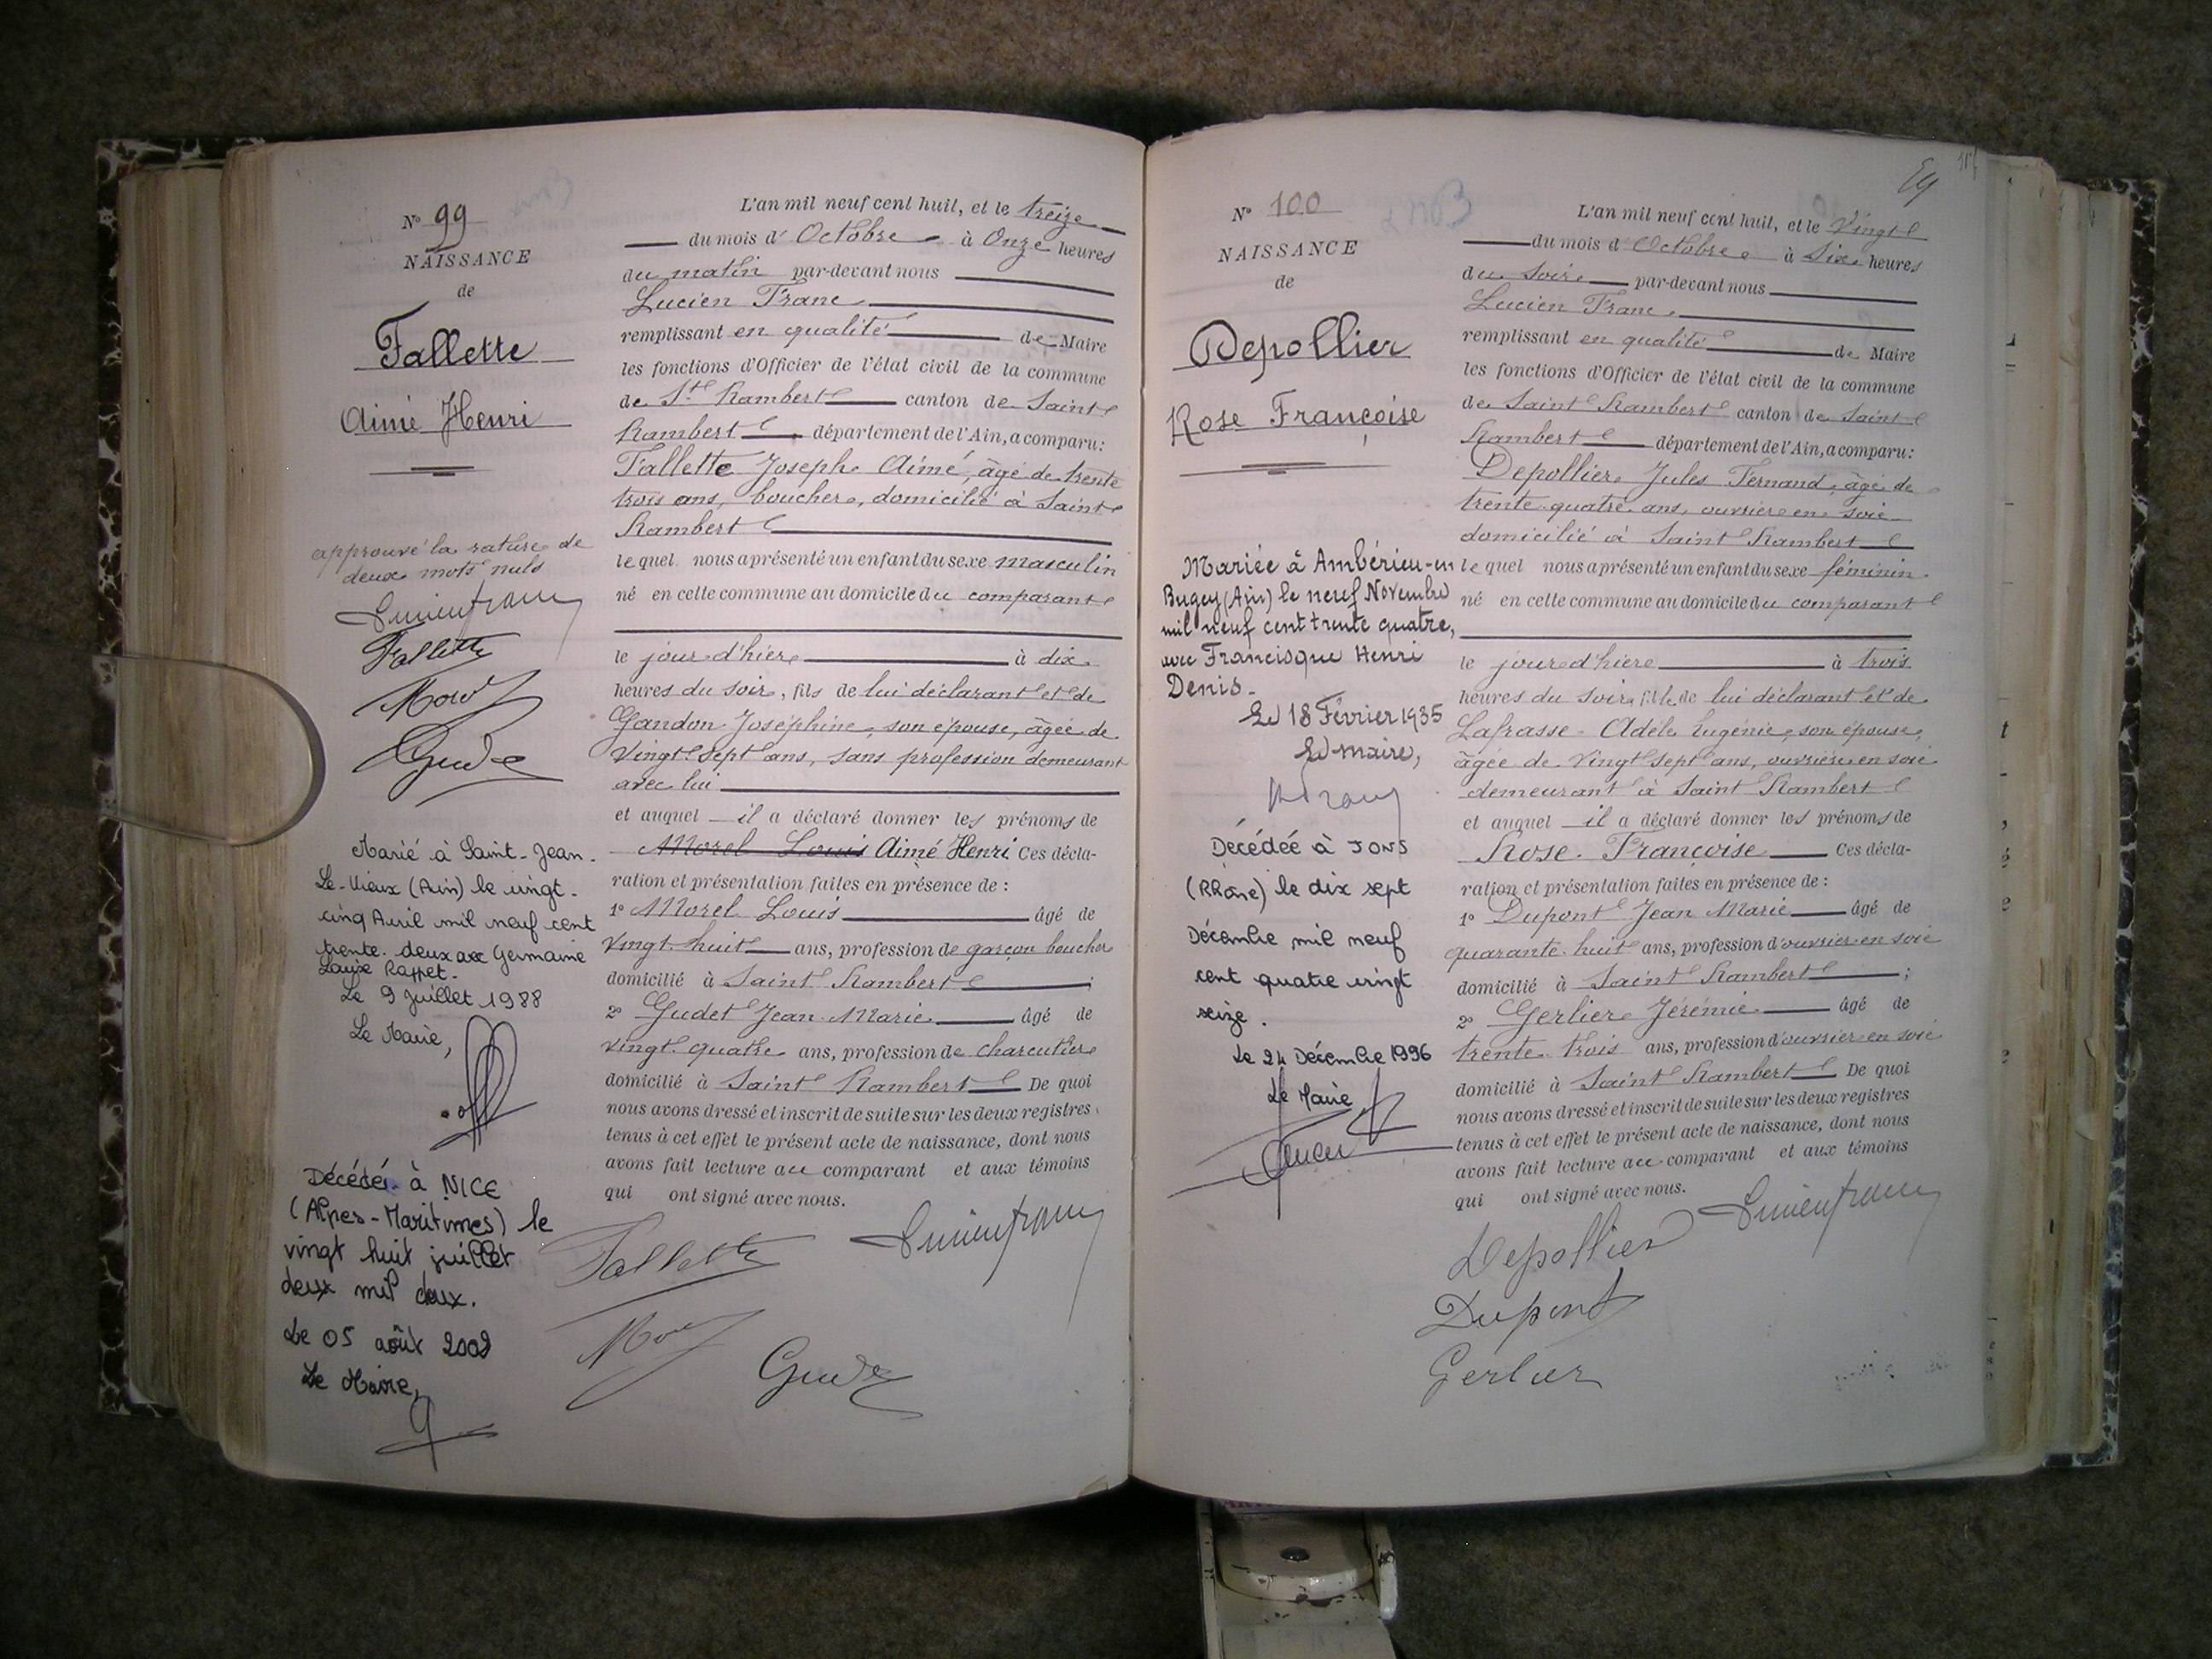 N° 99
NAISSANCE
de
Fallette
Aimé Henri
approuvé la rature de
deux mots nuls
Lucien Franc
Fallette
Morel
Gudet
Marié à Saint-Jean-
Le-Vieux (Ain) le vingt-
cinq Avril mil neuf cent
trente-deux avec Germaine
Louise Rappet.
Le 9 Juillet 1988
Le Maire,
Décédé à NICE
(Alpes-Maritimes) le
vingt huit juillet
deux mil deux.
Le 05 août 2002
Le Maire,
L'an mil neuf cent huit, et le treize
du mois d'Octobre à Onze heures
du matin par-devant nous
Lucien Franc
remplissant en qualité de Maire
les fonctions d'Officier de l'état civil de la commune
de St Rambert canton de Saint
Rambert département de l'Ain, a comparu:
Fallette Joseph Aimé, âgé de trente
trois ans, boucher, domicilié à Saint
Rambert
lequel nous a présenté un enfant du sexe masculin
né en cette commune au domicile du comparant
le jour d'hier à dix
heures du soir, fils de lui déclarant et de
Gandon Joséphine, son épouse, âgée de
vingt sept ans, sans profession demeurant
avec lui
et auquel il a déclaré donner les prénoms de
Morel Louis Aimé Henri Ces décla-
ration et présentation faites en présence de :
1° Morel Louis âgé de
vingt-huit ans, profession de garçon boucher
domicilié à Saint Rambert ;
2° Gudet Jean Marie âgé de
vingt-quatre ans, profession de charcutier
domicilié à Saint Rambert De quoi
nous avons dressé et inscrit de suite sur les deux registres
tenus à cet effet le présent acte de naissance, dont nous
avons fait lecture au comparant et aux témoins
qui ont signé avec nous.
Fallette Lucien Franc
Morel
Gudet
N° 100
NAISSANCE
de
Depollier
Rose Françoise
Mariée à Ambérieu-en
Bugey (Ain) le neuf Novembre
mil neuf cent trente quatre,
avec Francisque Henri
Denis-
Le 18 Février 1935
Le maire,
Décédée à JONS
(Rhône) le dix sept
Décembre mil neuf
cent quatre vingt
seize.
Le 24 Décembre 1996
Le Maire
89
L'an mil neuf cent huit, et le Vingt
du mois d'Octobre à Six heures
du soir par-devant nous
Lucien Franc
remplissant en qualité de Maire
les fonctions d'Officier de l'état civil de la commune
de Saint Rambert canton de Saint
Rambert département de l'Ain, a comparu:
Depollier Jules Fernand, âgé de
trente-quatre ans, ouvrier en soie
domicilié à Saint Rambert
lequel nous a présenté un enfant du sexe féminin
né en cette commune au domicile du comparant
le jour d'hier à trois
heures du soir, fille de lui déclarant et de
Lafrasse Adèle Eugénie, son épouse,
âgée de vingt sept ans, ouvrière en soie
demeurant à Saint Rambert
et auquel il a déclaré donner les prénoms de
Rose Françoise Ces décla-
ration et présentation faites en présence de :
1° Dupont Jean Marie âgé de
quarante-huit ans, profession d'ouvrier en soie
domicilié à Saint Rambert ;
2° Gerlier Jérémie âgé de
trente trois ans, profession d'ouvrier en soie
domicilié à Saint Rambert De quoi
nous avons dressé et inscrit de suite sur les deux registres
tenus à cet effet le présent acte de naissance, dont nous
avons fait lecture au comparant et aux témoins
qui ont signé avec nous.
Depollier Lucien Franc
Dupont
Gerlier